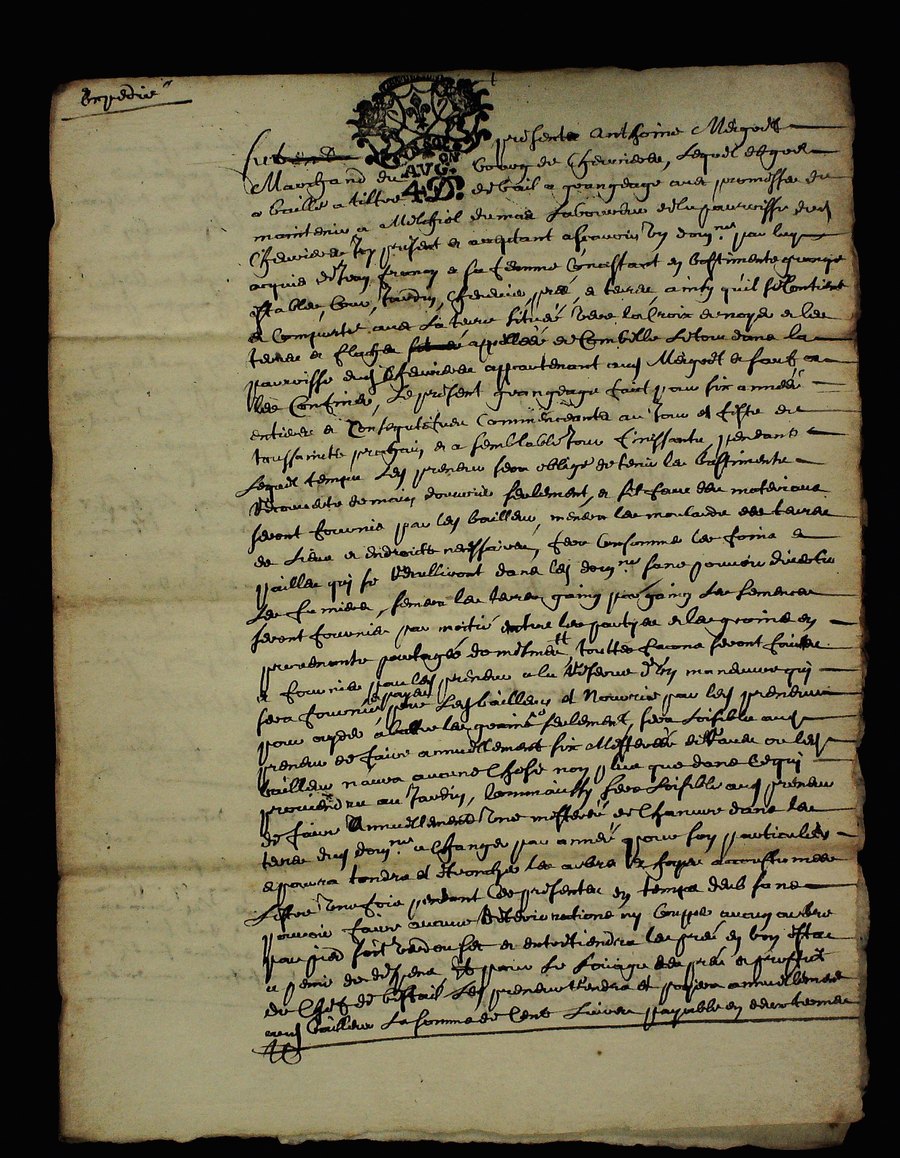 Expedié
AVG.
4 D.
fut present Anthoine Mergoet
Marchand du bourg de Chevrieres, Lequel de gré
a baillé a tiltre de bail a grangeage avec promesse de
maintenir a Melchiol dumas Laboureur de la parroisse dud
Chevrieres Icy present et acceptant ascavoir Un dom.ne par luy
acquis de Jean et sa femme Consistant en bastiments grange
estables, Cour, Jardin, Cheneviere, prés, et terres ainsy qu'il se Contient
et Comporte avec La terre située vers la Croix de noyer et les
terres et appellées de Combille Le tout dans la
parroisse dud Chevrieres appartenant aud Mergoet et sauf
les Confins, Le present grangeage fait pour six années
entieres et Consequtifves Commenceants au Jour et feste de
toussaints prochain et a semblable Jour finissants, pendant
Lequel temps Led preneur sera obligé de tenir les bastiments
Recouverts de main d'oeuvre seulement, et sil faut des materiaux
seront fournis par led bailleur, menera les des terres
de Lieux et endroicts necessaires, fera Consommer les foins et
pailles qui se Recullieront dans led dom.ne sans pouvoir divertir
Les fumiers, semera les terres gaing par gaing Les semences
seront fournies par moitié entre les parties et les grains en
provenants partagés de mesme, touttes facons seront faites
et fournies par led preneur a la Reserve d'Un maneuvre qui
sera fourni et payé par Led bailleur et Nourrie par led preneur
pour ayder a battre les grains seulement, sera Loisible aud
preneur de faire annuellement six Mesterées de raves ou led
bailleur n'aura aucune Chose non plus que dans Ce qui
proviendra au Jardin, Comm'aussy sera Loisible aud preneur
de faire Annuellement Une mesterée de Chanvre dans les
terres dud dom.ne a Changer par année pour son particulier
et pourra tondre et etroncher les arbres accoustumées
L'estre Une fois pendant Ces presentes en temps deub sans
pouvoir faire aucunes Deteriorations ny Couppé aucun arbre
par pied soit Verd ou sec et entretiendra les prés en bon estat
a peine de despens Et pour Le Louage des prés et proffit
du Chef de bestail Led preneur tiendra et payera annuellement
aud bailleur La somme de Cent Livres payable en deux termes